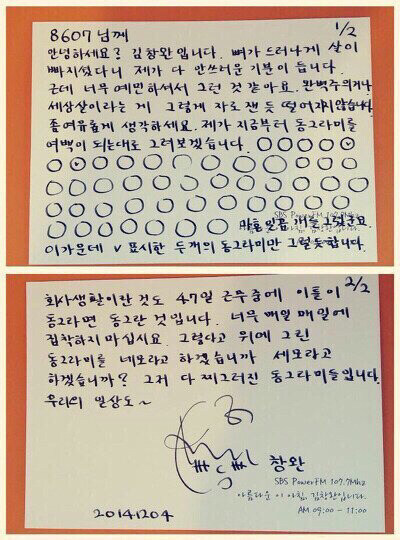 8607님께
1/2
안녕하세요? 김창완입니다. 뼈가 드러나게 살이
빠지셨다니 제가 다 안쓰러운 기분이 듭니다.
근데 너무 예민하셔서 그런 것 같아요. 완벽주의거나
세상살이라는 게 그렇게 자로 잰 듯 떨어지지않습니다.
좀 여유롭게 생각하세요. 제가 지금부터 동그라미를
여백이 되는대로 그려보겠습니다.
마흔일곱 개를 그렸군요.
SBS PowerFM 107.7Mhz
이 아침, 김창완입니다.
이 가운데 v 표시한 두개의 동그라미만 그럴듯합니다.
2/2
회사생활이란것도 47일 근무중에 이틀이
동그라면 동그란 것입니다. 너무 매일 매일에
집착하지 마십시요. 그렇다고 위에 그린
동그라미를 네모라고 하겠습니까 세모라고
하겠습니까? 그저 다 찌그러진 동그라미들입니다.
우리의 일상도~
창완
SBS PowerFM 107.7Mhz
아름다운 이 아침, 김창완입니다.
AM 09:00 - 11:00
20141204